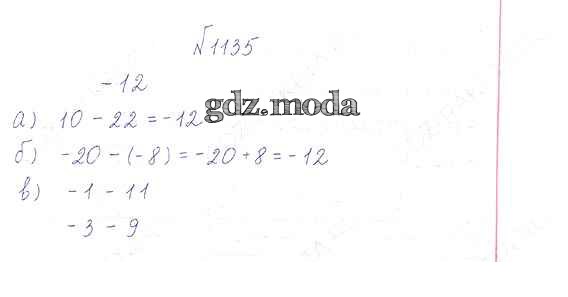 №1135
-12
а) 10 - 22 = -12
gdz.moda
б) -20 - (-8) = -20 + 8 = -12
в) -1 - 11
-3 - 9